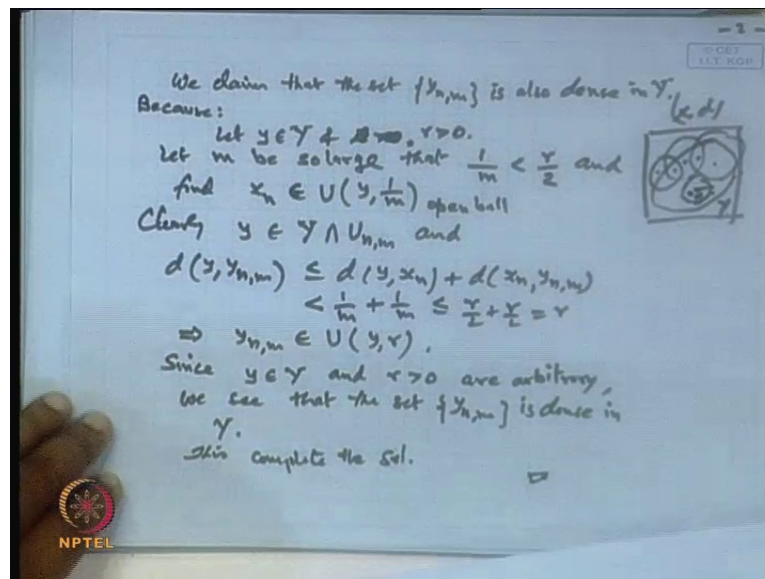 - 2 -
© CET
I.I.T. KGP
We claim that the set {y_{n,m}} is also dense in Y.
Because:
(X, d)
Let y ∈ Y & r > 0.
Let m be so large that 1/m < r/2 and
find x_n ∈ U(y, 1/m) open ball
Y
Clearly y ∈ Y ∩ U_{n,m} and
d(y, y_{n,m}) ≤ d(y, x_n) + d(x_n, y_{n,m})
< 1/m + 1/m ≤ r/2 + r/2 = r
⇒ y_{n,m} ∈ U(y, r).
Since y ∈ Y and r > 0 are arbitrary,
we see that the set {y_{n,m}} is dense in
Y.
This complete the Sol.
NPTEL